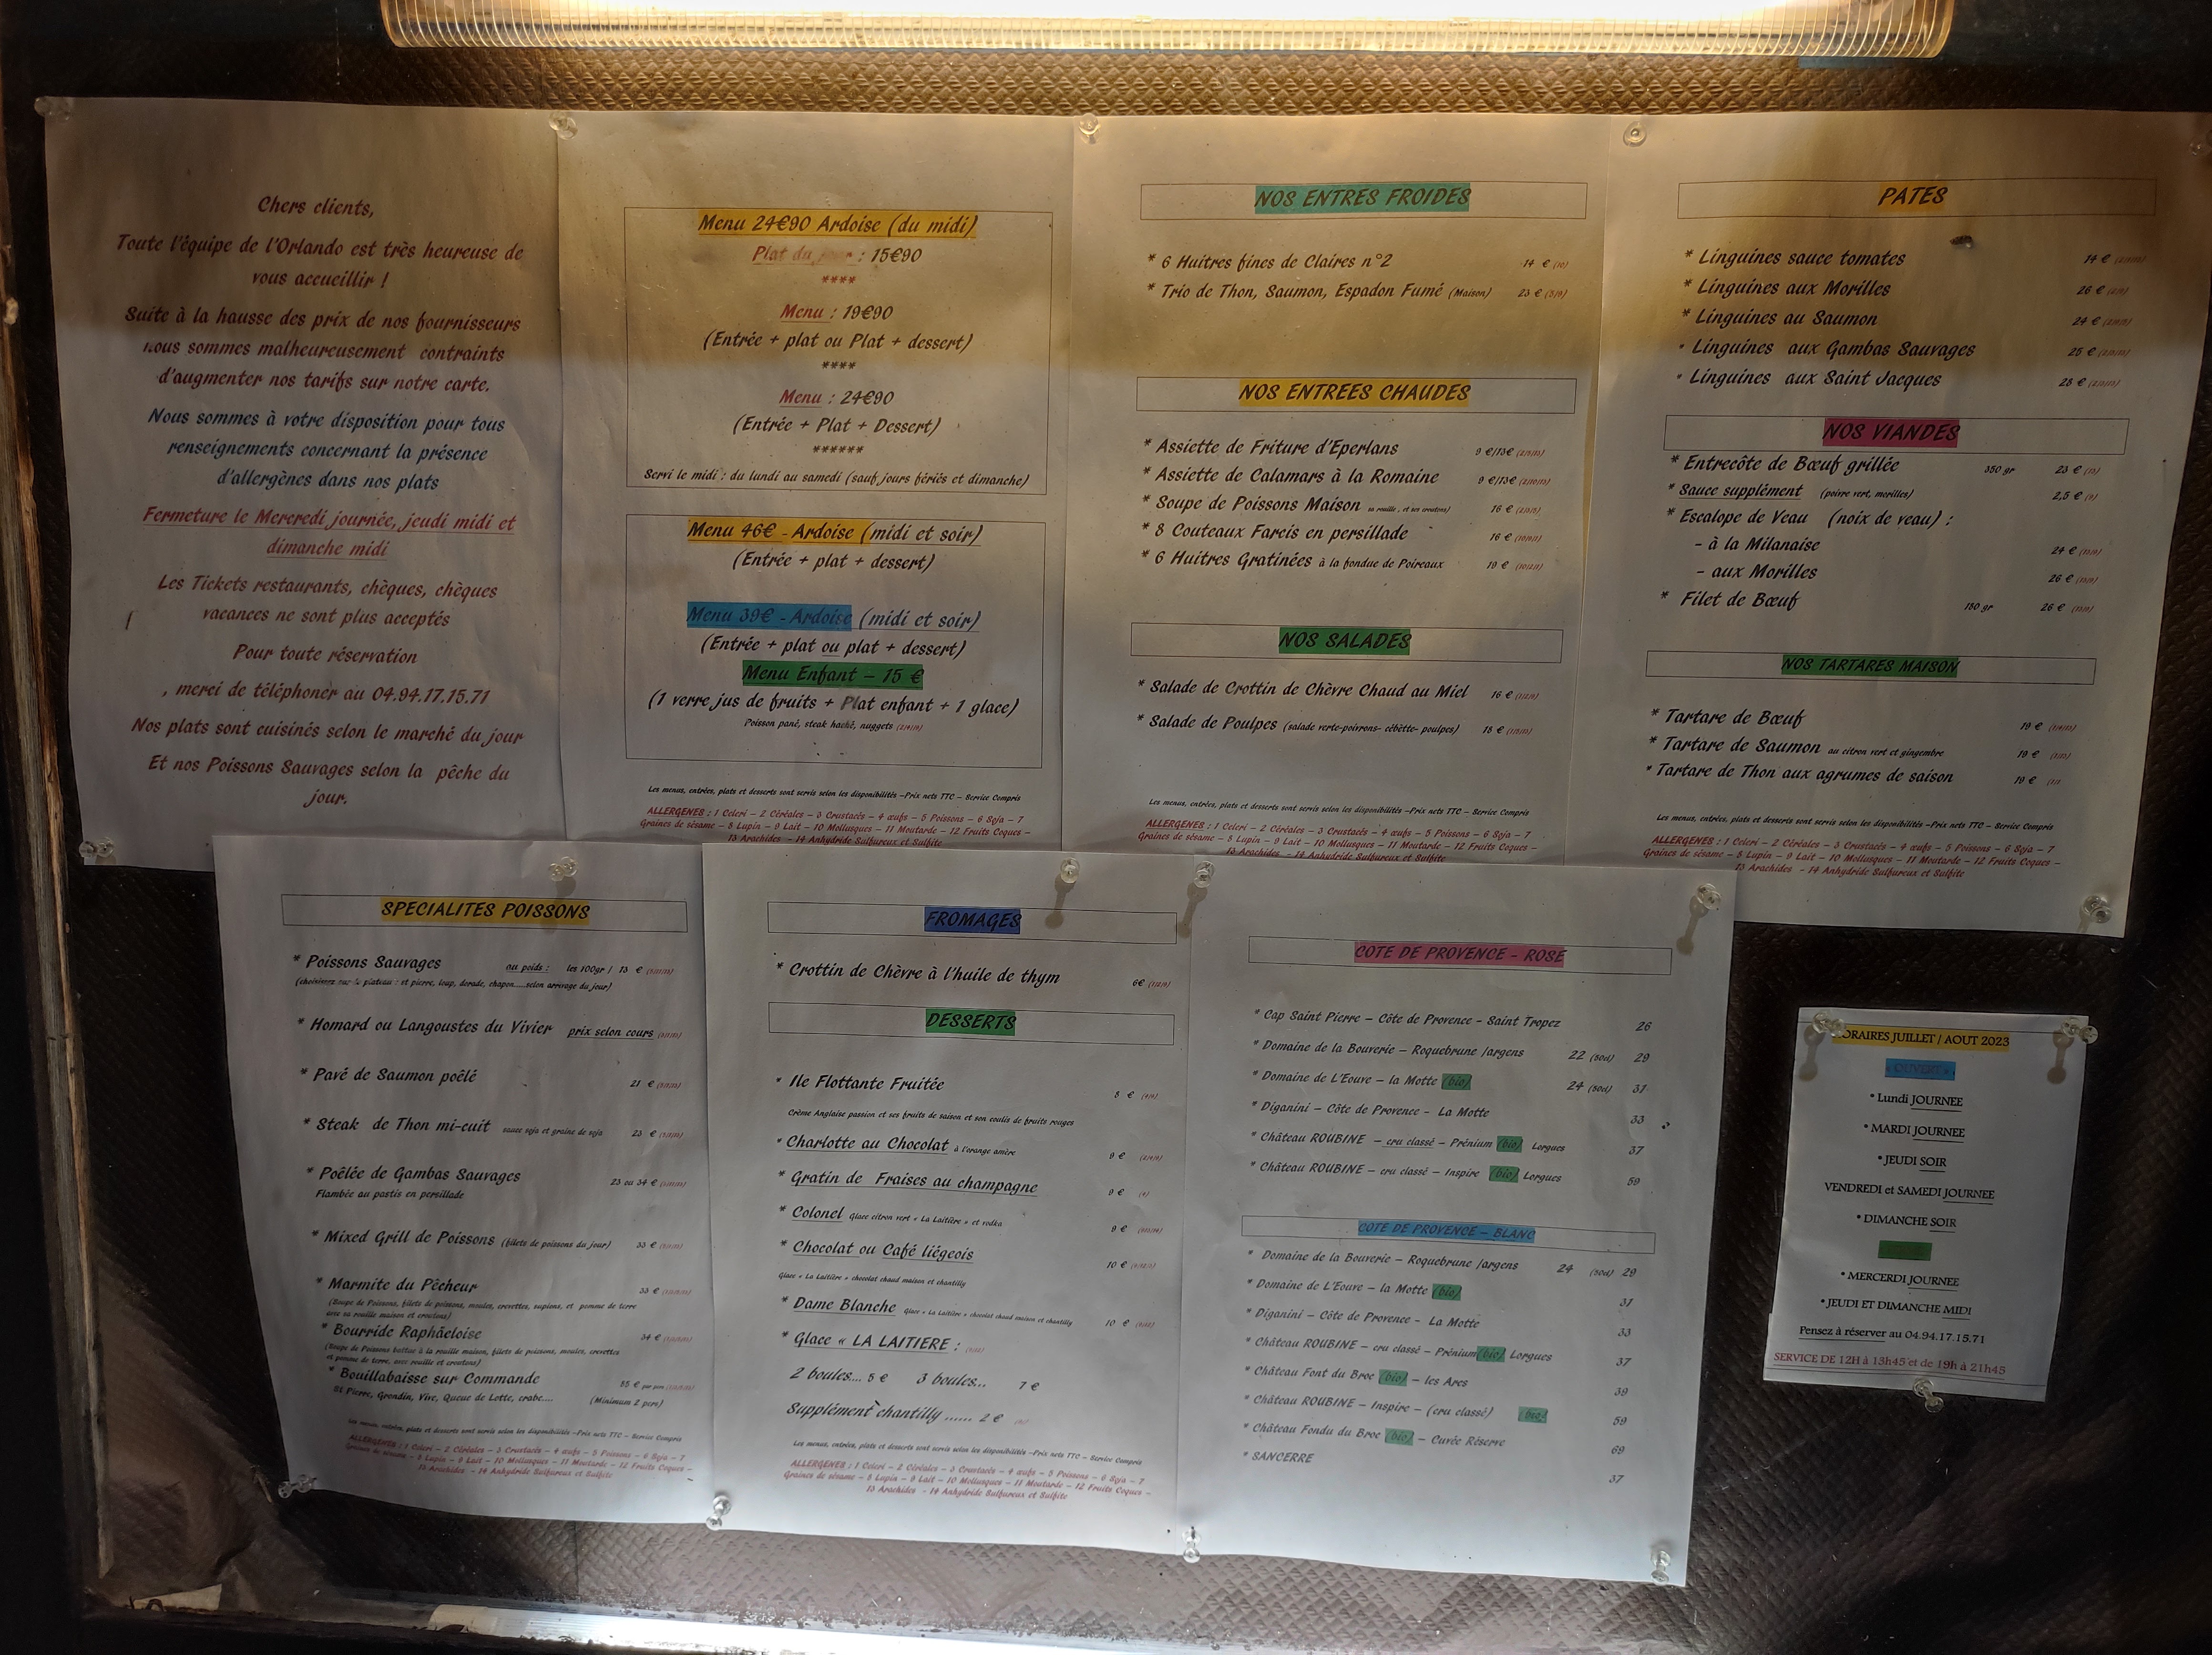 Chers clients,
Toute l'équipe de l'Orlando est très heureuse de
vous accueillir !
Suite à la hausse des prix de nos fournisseurs
nous sommes malheureusement contraints
d'augmenter nos tarifs sur notre carte.
Nous sommes à votre disposition pour tous
renseignements concernant la présence
d'allergènes dans nos plats
Fermeture le Mercredi journée, jeudi midi et
dimanche midi
Les Tickets restaurants, chèques, chèques
vacances ne sont plus acceptés
Pour toute réservation
, merci de téléphoner au 04.94.17.15.71
Nos plats sont cuisinés selon le marché du jour
Et nos Poissons Sauvages selon la pêche du
jour.
Menu 24€90 Ardoise (du midi)
Plat du jour : 15€90
****
Menu : 19€90
(Entrée + plat ou Plat + dessert)
****
Menu : 24€90
(Entrée + Plat + Dessert)
******
Servi le midi : du lundi au samedi (sauf jours fériés et dimanche)
Menu 46€ - Ardoise (midi et soir)
(Entrée + plat + dessert)
Menu 39€ - Ardoise (midi et soir)
(Entrée + plat ou plat + dessert)
Menu Enfant – 15 €
(1 verre jus de fruits + Plat enfant + 1 glace)
Poisson pané, steak haché, nuggets
Les menus, entrées, plats et desserts sont servis selon les disponibilités –Prix nets TTC – Service Compris
ALLERGENES : 1 Celeri – 2 Céréales – 3 Crustacés – 4 œufs – 5 Poissons – 6 Soja – 7
Graines de sésame – 8 Lupin – 9 Lait – 10 Mollusques – 11 Moutarde – 12 Fruits Coques –
13 Arachides - 14 Anhydride Sulfureux et Sulfite
NOS ENTRES FROIDES
* 6 Huitres fines de Claires n°2 14 € (10)
* Trio de Thon, Saumon, Espadon Fumé (Maison) 23 € (5/9)
NOS ENTREES CHAUDES
* Assiette de Friture d'Eperlans 9 €/13€
* Assiette de Calamars à la Romaine 9 €/13€
* Soupe de Poissons Maison sa rouille , et ses croutons) 16 €
* 8 Couteaux Farcis en persillade 16 €
* 6 Huitres Gratinées à la fondue de Poireaux 19 €
NOS SALADES
* Salade de Crottin de Chèvre Chaud au Miel 16 €
* Salade de Poulpes (salade verte-poivrons- cébètte- poulpes) 18 €
Les menus, entrées, plats et desserts sont servis selon les disponibilités –Prix nets TTC – Service Compris
ALLERGENES : 1 Celeri – 2 Céréales – 3 Crustacés – 4 œufs – 5 Poissons – 6 Soja – 7
Graines de sésame – 8 Lupin – 9 Lait – 10 Mollusques – 11 Moutarde – 12 Fruits Coques –
13 Arachides - 14 Anhydride Sulfureux et Sulfite
PATES
* Linguines sauce tomates 14 €
* Linguines aux Morilles 26 €
* Linguines au Saumon 24 €
* Linguines aux Gambas Sauvages 25 €
* Linguines aux Saint Jacques 28 €
NOS VIANDES
* Entrecôte de Bœuf grillée 350 gr 23 €
* Sauce supplément (poivre vert, morilles) 2,5 €
* Escalope de Veau (noix de veau) :
- à la Milanaise 24 €
- aux Morilles 26 €
* Filet de Bœuf 180 gr 26 €
NOS TARTARES MAISON
* Tartare de Bœuf 19 €
* Tartare de Saumon au citron vert et gingembre 19 €
* Tartare de Thon aux agrumes de saison 19 €
Les menus, entrées, plats et desserts sont servis selon les disponibilités –Prix nets TTC – Service Compris
ALLERGENES : 1 Celeri – 2 Céréales – 3 Crustacés – 4 œufs – 5 Poissons – 6 Soja – 7
Graines de sésame – 8 Lupin – 9 Lait – 10 Mollusques – 11 Moutarde – 12 Fruits Coques –
13 Arachides - 14 Anhydride Sulfureux et Sulfite
SPECIALITES POISSONS
* Poissons Sauvages au poids : les 100gr / 13 €
(choisissez sur le plateau : st pierre, loup, dorade, chapon.....selon arrivage du jour)
* Homard ou Langoustes du Vivier prix selon cours
* Pavé de Saumon poêlé 21 €
* Steak de Thon mi-cuit sauce soja et graine de soja 23 €
* Poêlée de Gambas Sauvages 23 ou 34 €
Flambée au pastis en persillade
* Mixed Grill de Poissons (filets de poissons du jour) 33 €
* Marmite du Pêcheur 33 €
(Soupe de Poissons, filets de poissons, moules, crevettes, supions, et pomme de terre
avec sa rouille maison et croutons)
* Bourride Raphâeloise 34 €
(Soupe de Poissons battue à la rouille maison, filets de poissons, moules, crevettes
et pomme de terre, avec rouille et croutons)
* Bouillabaisse sur Commande 55 € par pers
St Pierre, Grondin, Vive, Queue de Lotte, crabe.... (Minimum 2 pers)
Les menus, entrées, plats et desserts sont servis selon les disponibilités –Prix nets TTC – Service Compris
ALLERGENES : 1 Celeri – 2 Céréales – 3 Crustacés – 4 œufs – 5 Poissons – 6 Soja – 7
Graines de sésame – 8 Lupin – 9 Lait – 10 Mollusques – 11 Moutarde – 12 Fruits Coques –
13 Arachides - 14 Anhydride Sulfureux et Sulfite
FROMAGES
* Crottin de Chèvre à l'huile de thym 6€
DESSERTS
* Ile Flottante Fruitée 8 €
Crème Anglaise passion et ses fruits de saison et son coulis de fruits rouges
* Charlotte au Chocolat à l'orange amère 9 €
* Gratin de Fraises au champagne 9 €
* Colonel Glace citron vert « La Laitière » et vodka 9 €
* Chocolat ou Café liégeois 10 €
Glace « La Laitière » chocolat chaud maison et chantilly
* Dame Blanche Glace « La Laitière » chocolat chaud maison et chantilly 10 €
* Glace « LA LAITIERE :
2 boules... 5 € 3 boules... 7 €
Supplément chantilly ...... 2 €
Les menus, entrées, plats et desserts sont servis selon les disponibilités –Prix nets TTC – Service Compris
ALLERGENES : 1 Celeri – 2 Céréales – 3 Crustacés – 4 œufs – 5 Poissons – 6 Soja – 7
Graines de sésame – 8 Lupin – 9 Lait – 10 Mollusques – 11 Moutarde – 12 Fruits Coques –
13 Arachides - 14 Anhydride Sulfureux et Sulfite
COTE DE PROVENCE - ROSE
* Cap Saint Pierre – Côte de Provence - Saint Tropez 26
* Domaine de la Bouverie – Roquebrune /argens 22 (50cl) 29
* Domaine de L'Eouve – la Motte (bio) 24 (50cl) 31
* Diganini – Côte de Provence - La Motte 33
* Château ROUBINE – cru classé – Prénium (bio) Lorgues 37
* Château ROUBINE – cru classé – Inspire (bio) Lorgues 59
COTE DE PROVENCE – BLANC
* Domaine de la Bouverie – Roquebrune /argens 24 (50cl) 29
* Domaine de L'Eouve – la Motte (bio) 31
* Diganini – Côte de Provence - La Motte 33
* Château ROUBINE – cru classé – Prénium (bio) Lorgues 37
* Château Font du Broc (bio) – les Arcs 39
* Château ROUBINE – Inspire – (cru classé) (bio) 59
* Château Fondu du Broc (bio) – Cuvée Réserve 69
* SANCERRE 37
HORAIRES JUILLET / AOUT 2023
« OUVERT »
* Lundi JOURNEE
* MARDI JOURNEE
* JEUDI SOIR
VENDREDI et SAMEDI JOURNEE
* DIMANCHE SOIR
* MERCERDI JOURNEE
* JEUDI ET DIMANCHE MIDI
Pensez à réserver au 04.94.17.15.71
SERVICE DE 12H à 13h45 et de 19h à 21h45